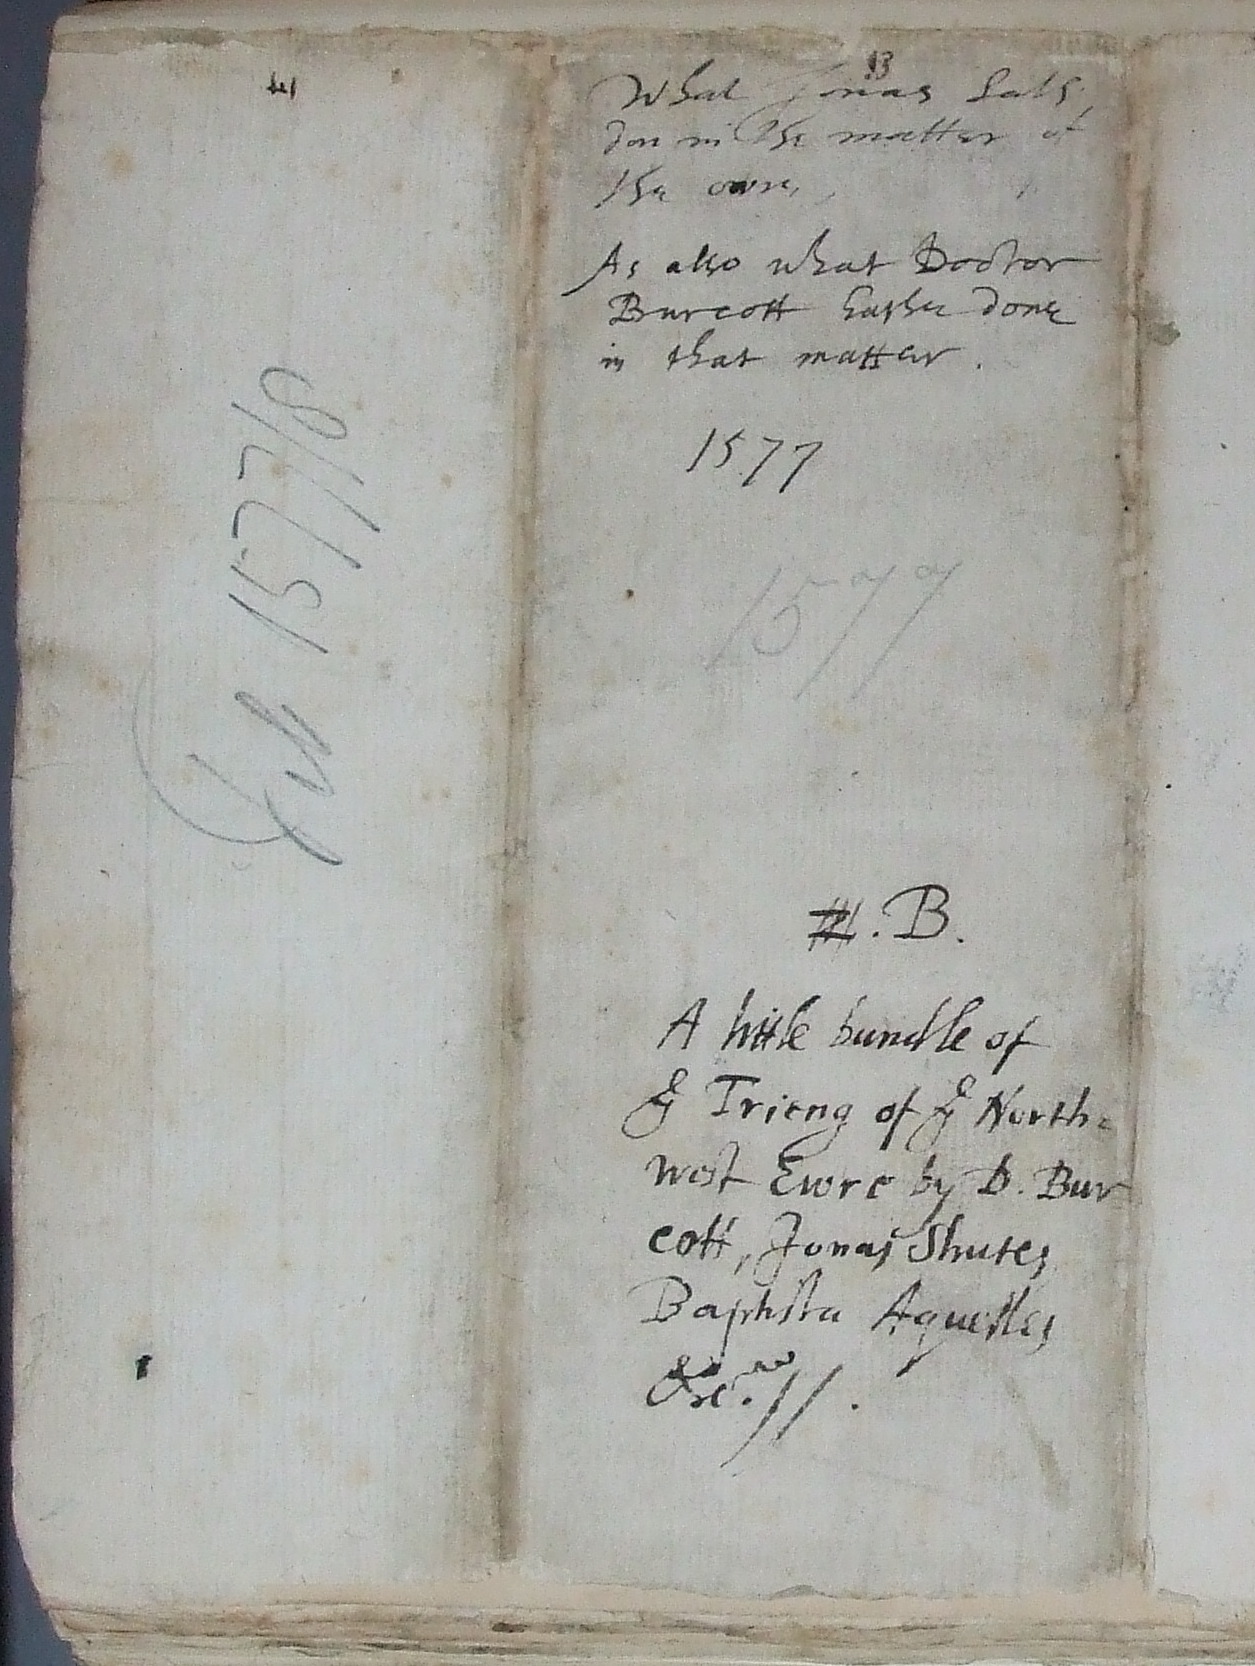 13
What Jonas hath
don in the matter of
the owre,
As also what Doctor
Burcott hathe done
in that matter.
1577
1577
Feb 1577/8
B.
A little bundle of
yᵉ Trieng of yᵉ North=
west Ewre by D. Bur
cott, Jonas Shutes
Baptista Agnelles
&c. //.